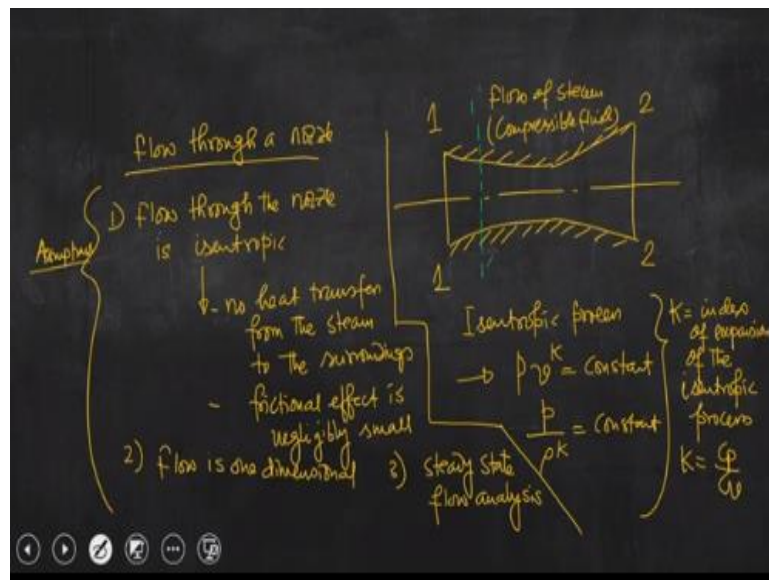 flow through a nozzle
Assumptions
1) flow through the nozzle
is isentropic
- no heat transfer
from the steam
to the surroundings
- frictional effect is
negligibly small
2) flow is one dimensional
3) steady state
flow analysis
flow of steam
(Compressible fluid)
1
2
1
2
Isentropic process
→ pv^K = constant
p/ρ^K = constant
K = index
of expansion
of the
isentropic
process
K = Cp/Cv